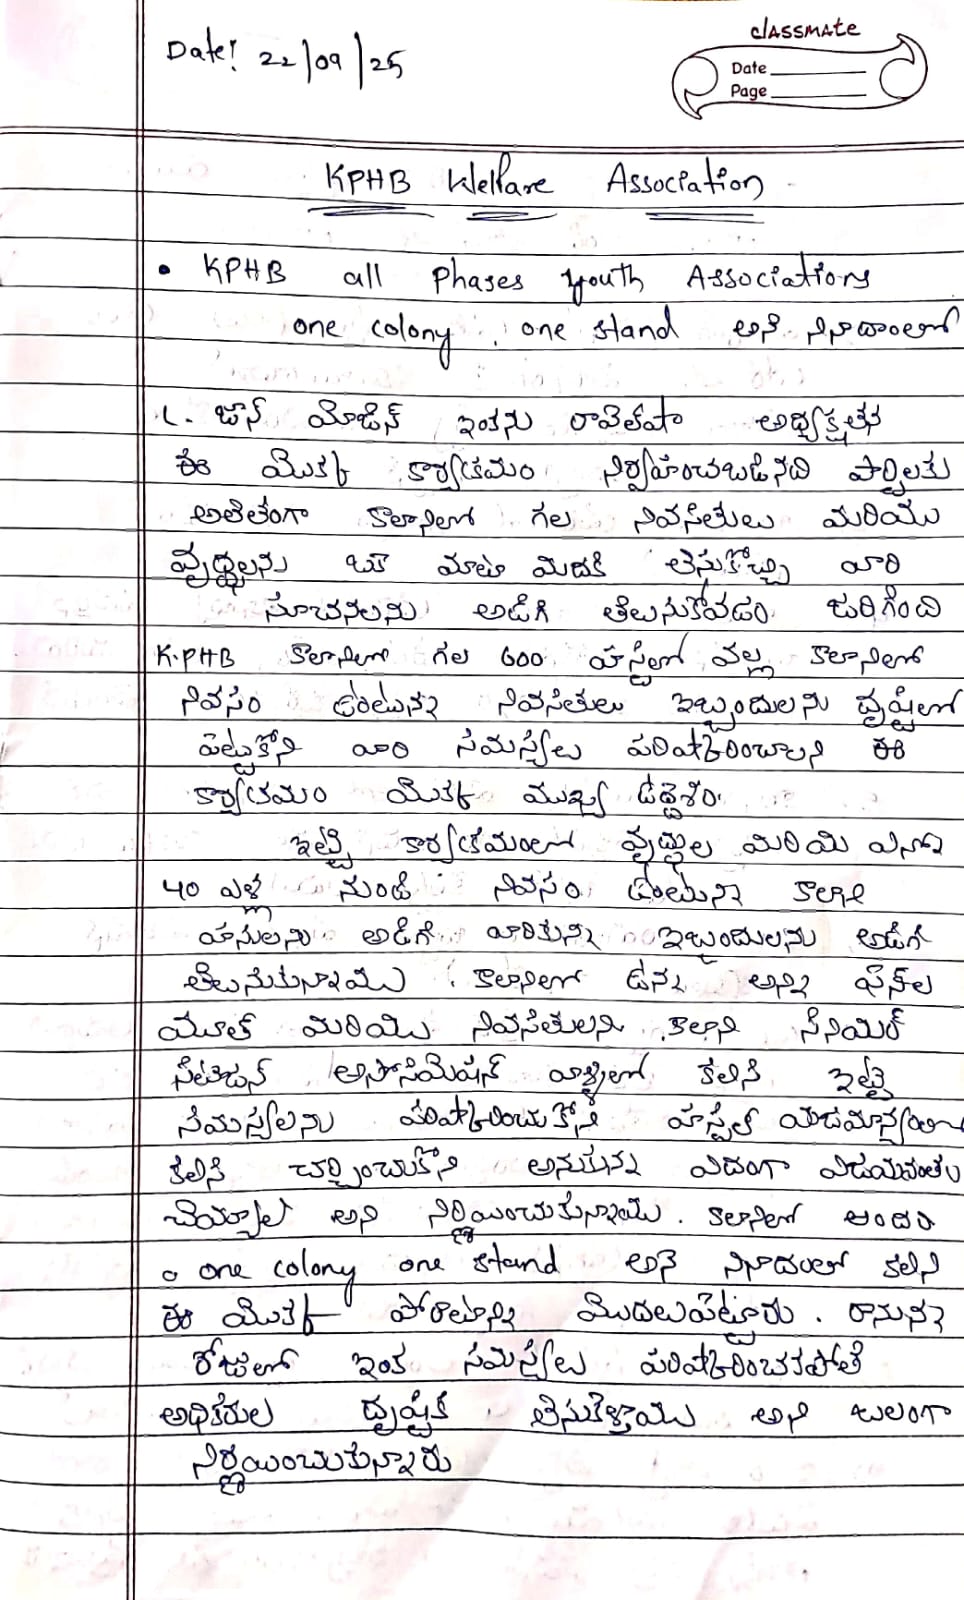 classmate
Date
Page
Date! 22/09/25
KPHB Welfare Association
• KPHB all Phases youth Associations
one colony, one stand అనే నినాదంలో
L. జాన్ మోజెస్ ఇంకను రావెల్ అధ్యక్షతన
ఈ మొక్క కార్యక్రమం నిర్వహించబడినది పార్టిలకు
అతితంగా కాలానిలో గల నివసితులు మరియు
వృద్ధులను ఒకే మాట మిదకి తిసుకోచ్చి వారి
సూచనలను అడిగి తెలుసుకోవడం జరిగింది
K.PHB కాలానిలో గల 600 హాస్టల్ వల్ల కాలానిలో
నివసం ఉంటున్న నివసితులు ఇబ్బందులను దృష్టిలో
పెట్టుకోని వారి సమస్యలు పరిష్కరించాలని ఈ
కార్యక్రమం యొక్క ముఖ్య ఉద్దెశం.
ఇట్టి కార్యక్రమంలో వృద్ధుల మరియి ఎన్నో
40 ఎళ్ల నుండి నివసం ఉంటున్న కాలాని
వాసులని అడిగి వారికున్న ఇబ్బందులను అడిగి
తెలుసుకున్నాము. కాలానిలో ఉన్న అన్ని ఫేస్‌ల
యూత్ మరియి నివసితులని కాలాని సీనియర్
సిటిజన్ అసోసియేషన్ వాళ్ళలో కలిసి ఇట్టి
సమస్యలను పరిష్కరించుకోని హాస్టల్ యాజమాన్యంలు
కలిసి చర్చించుకోని అనుకున్న విదంగా విజయవంతం
చెయ్యాలి అని నిర్ణయించుకున్నాము. కాలానిలో అందరు
o one colony one stand అనే నినాదంలో కలిసి
ఈ మొక్క పోరాటాన్ని మొదలుపెట్టారు. రానున్న
రోజులో ఇంక సమస్యలు పరిష్కరించకపోతే
అధికారుల దృష్టికి తిసుకెళ్తాము అని బలంగా
నిర్ణయించుకున్నారు